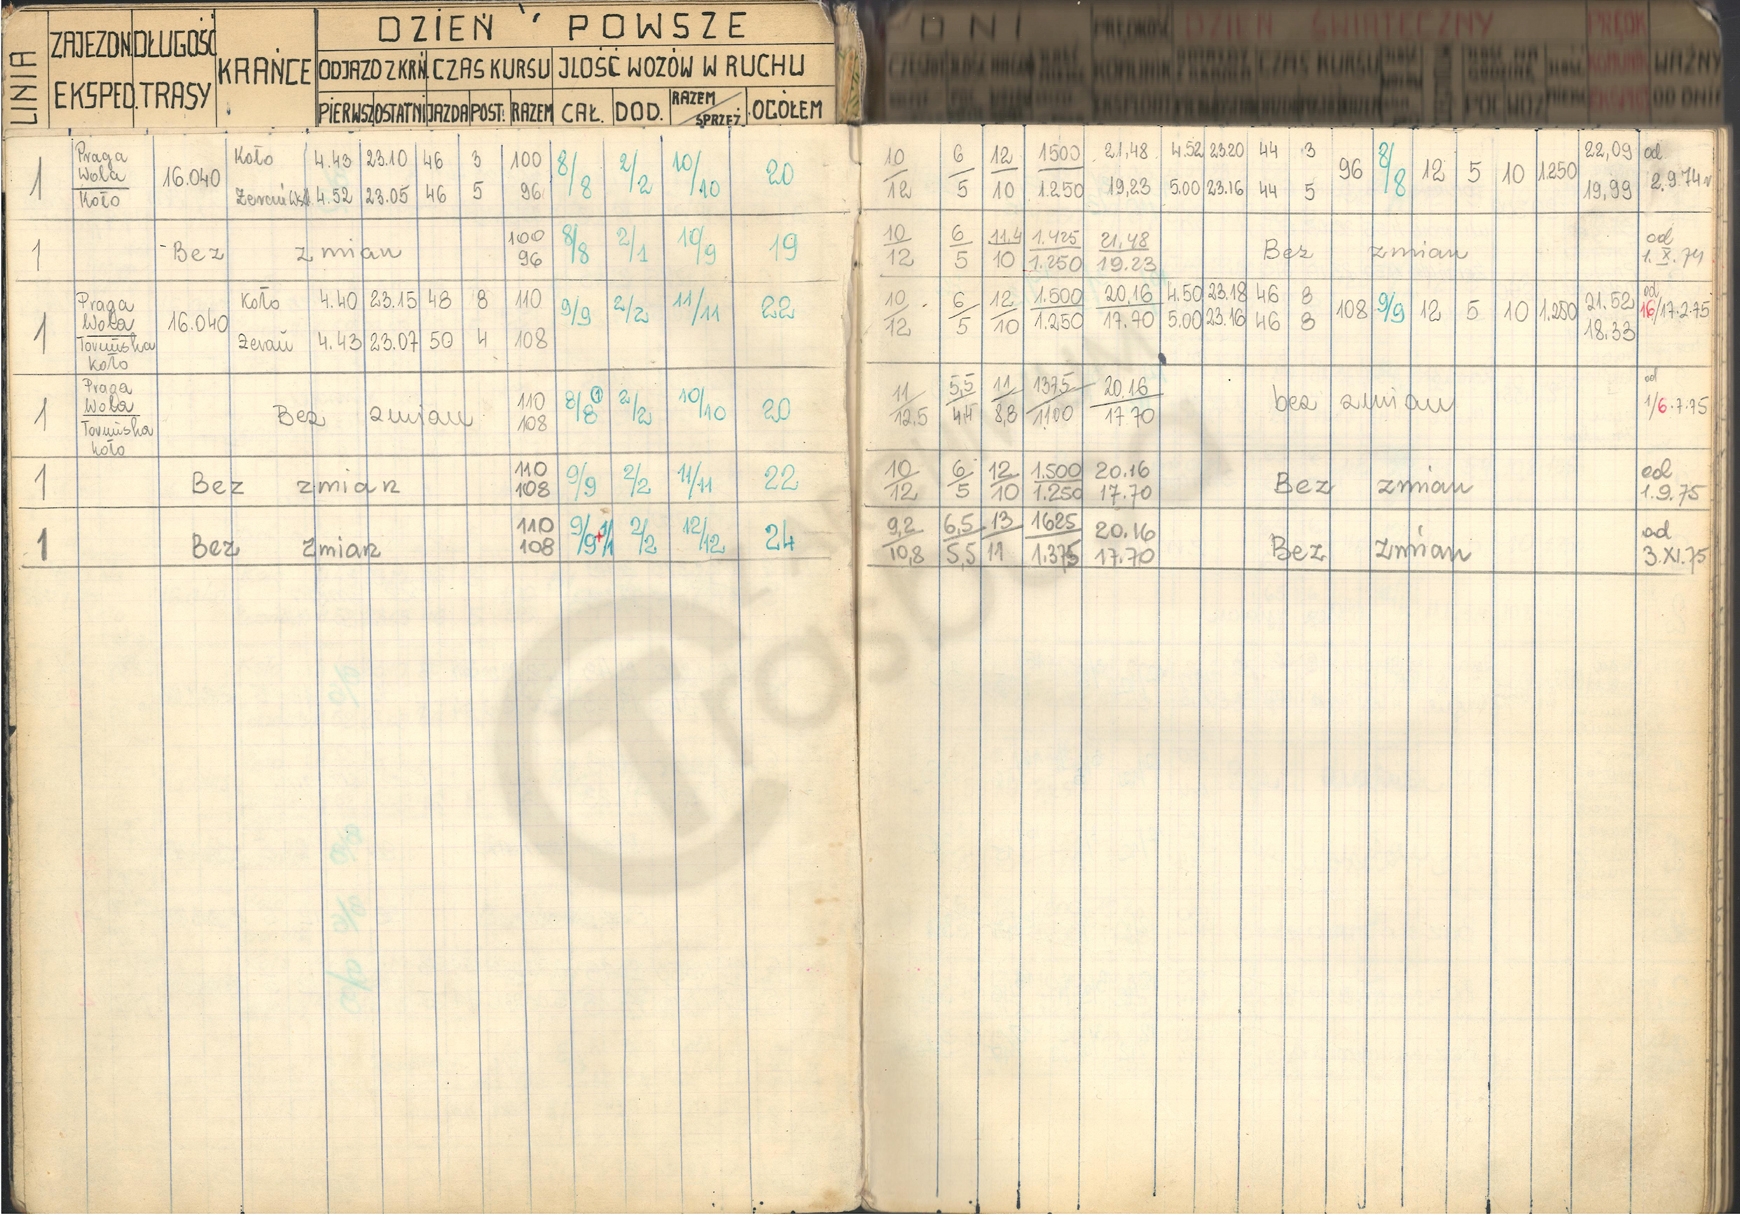 LINIA
ZAJEZDN. DŁUGOŚĆ
EKSPED. TRASY
KRAŃCE
DZIEŃ POWSZE
ODJAZD Z KRŃ. CZAS KURSU JLOŚĆ WOZÓW W RUCHU
PIERWSZ OSTATNI JAZDA POST. RAZEM CAŁ. DOD. RAZEM/SPRZĘŻ. OGÓŁEM
DNI PRĘDKOŚĆ DZIEŃ ŚWIĄTECZNY PRĘDK
CZAS KURSU WAŻNY
OD DNIA
1 Praga Wola Koło 16.040 Koło 4.43 23.10 46 3 100 8/8 2/2 10/10 20 10/12 6/5 12/10 1500/1.250 21,48 4.52 23.20 44 3 96 8/8 12 5 10 1.250 22,09 od
Żerań Wsch. 4.52 23.05 46 5 96 19,23 5.00 23.16 44 5 19,99 2.9.74 r
1 Bez zmian 100 96 8/8 2/1 10/9 19 10/12 6/5 11.4/10 1.425/1.250 21,48/19.23 Bez zmian od 1.X.74
1 Praga Wola Toruńska Koło 16.040 Koło 4.40 23.15 48 8 110 9/9 2/2 11/11 22 10/12 6/5 12/10 1.500/1.250 20,16 4.50 23.18 46 8 108 9/9 12 5 10 1.250 21.52 od 16/17.2.75
Żerań 4.43 23.07 50 4 108 17.70 5.00 23.16 46 8 18.33
1 Praga Wola Toruńska Koło Bez zmian 110 108 8/8 1 2/2 10/10 20 11/12.5 5,5/4,4 11/8,8 1375/1100 20.16/17.70 bez zmian od 1/6.7.75
1 Bez zmian 110 108 9/9 2/2 11/11 22 10/12 6/5 12/10 1.500/1.250 20.16 17.70 Bez zmian od 1.9.75
1 Bez zmian 110 108 9/9+1/1 2/2 12/12 24 9,2/10,8 6,5/5,5 13/11 1625/1.375 20.16 17.70 Bez zmian od 3.XI.75
Trasbus